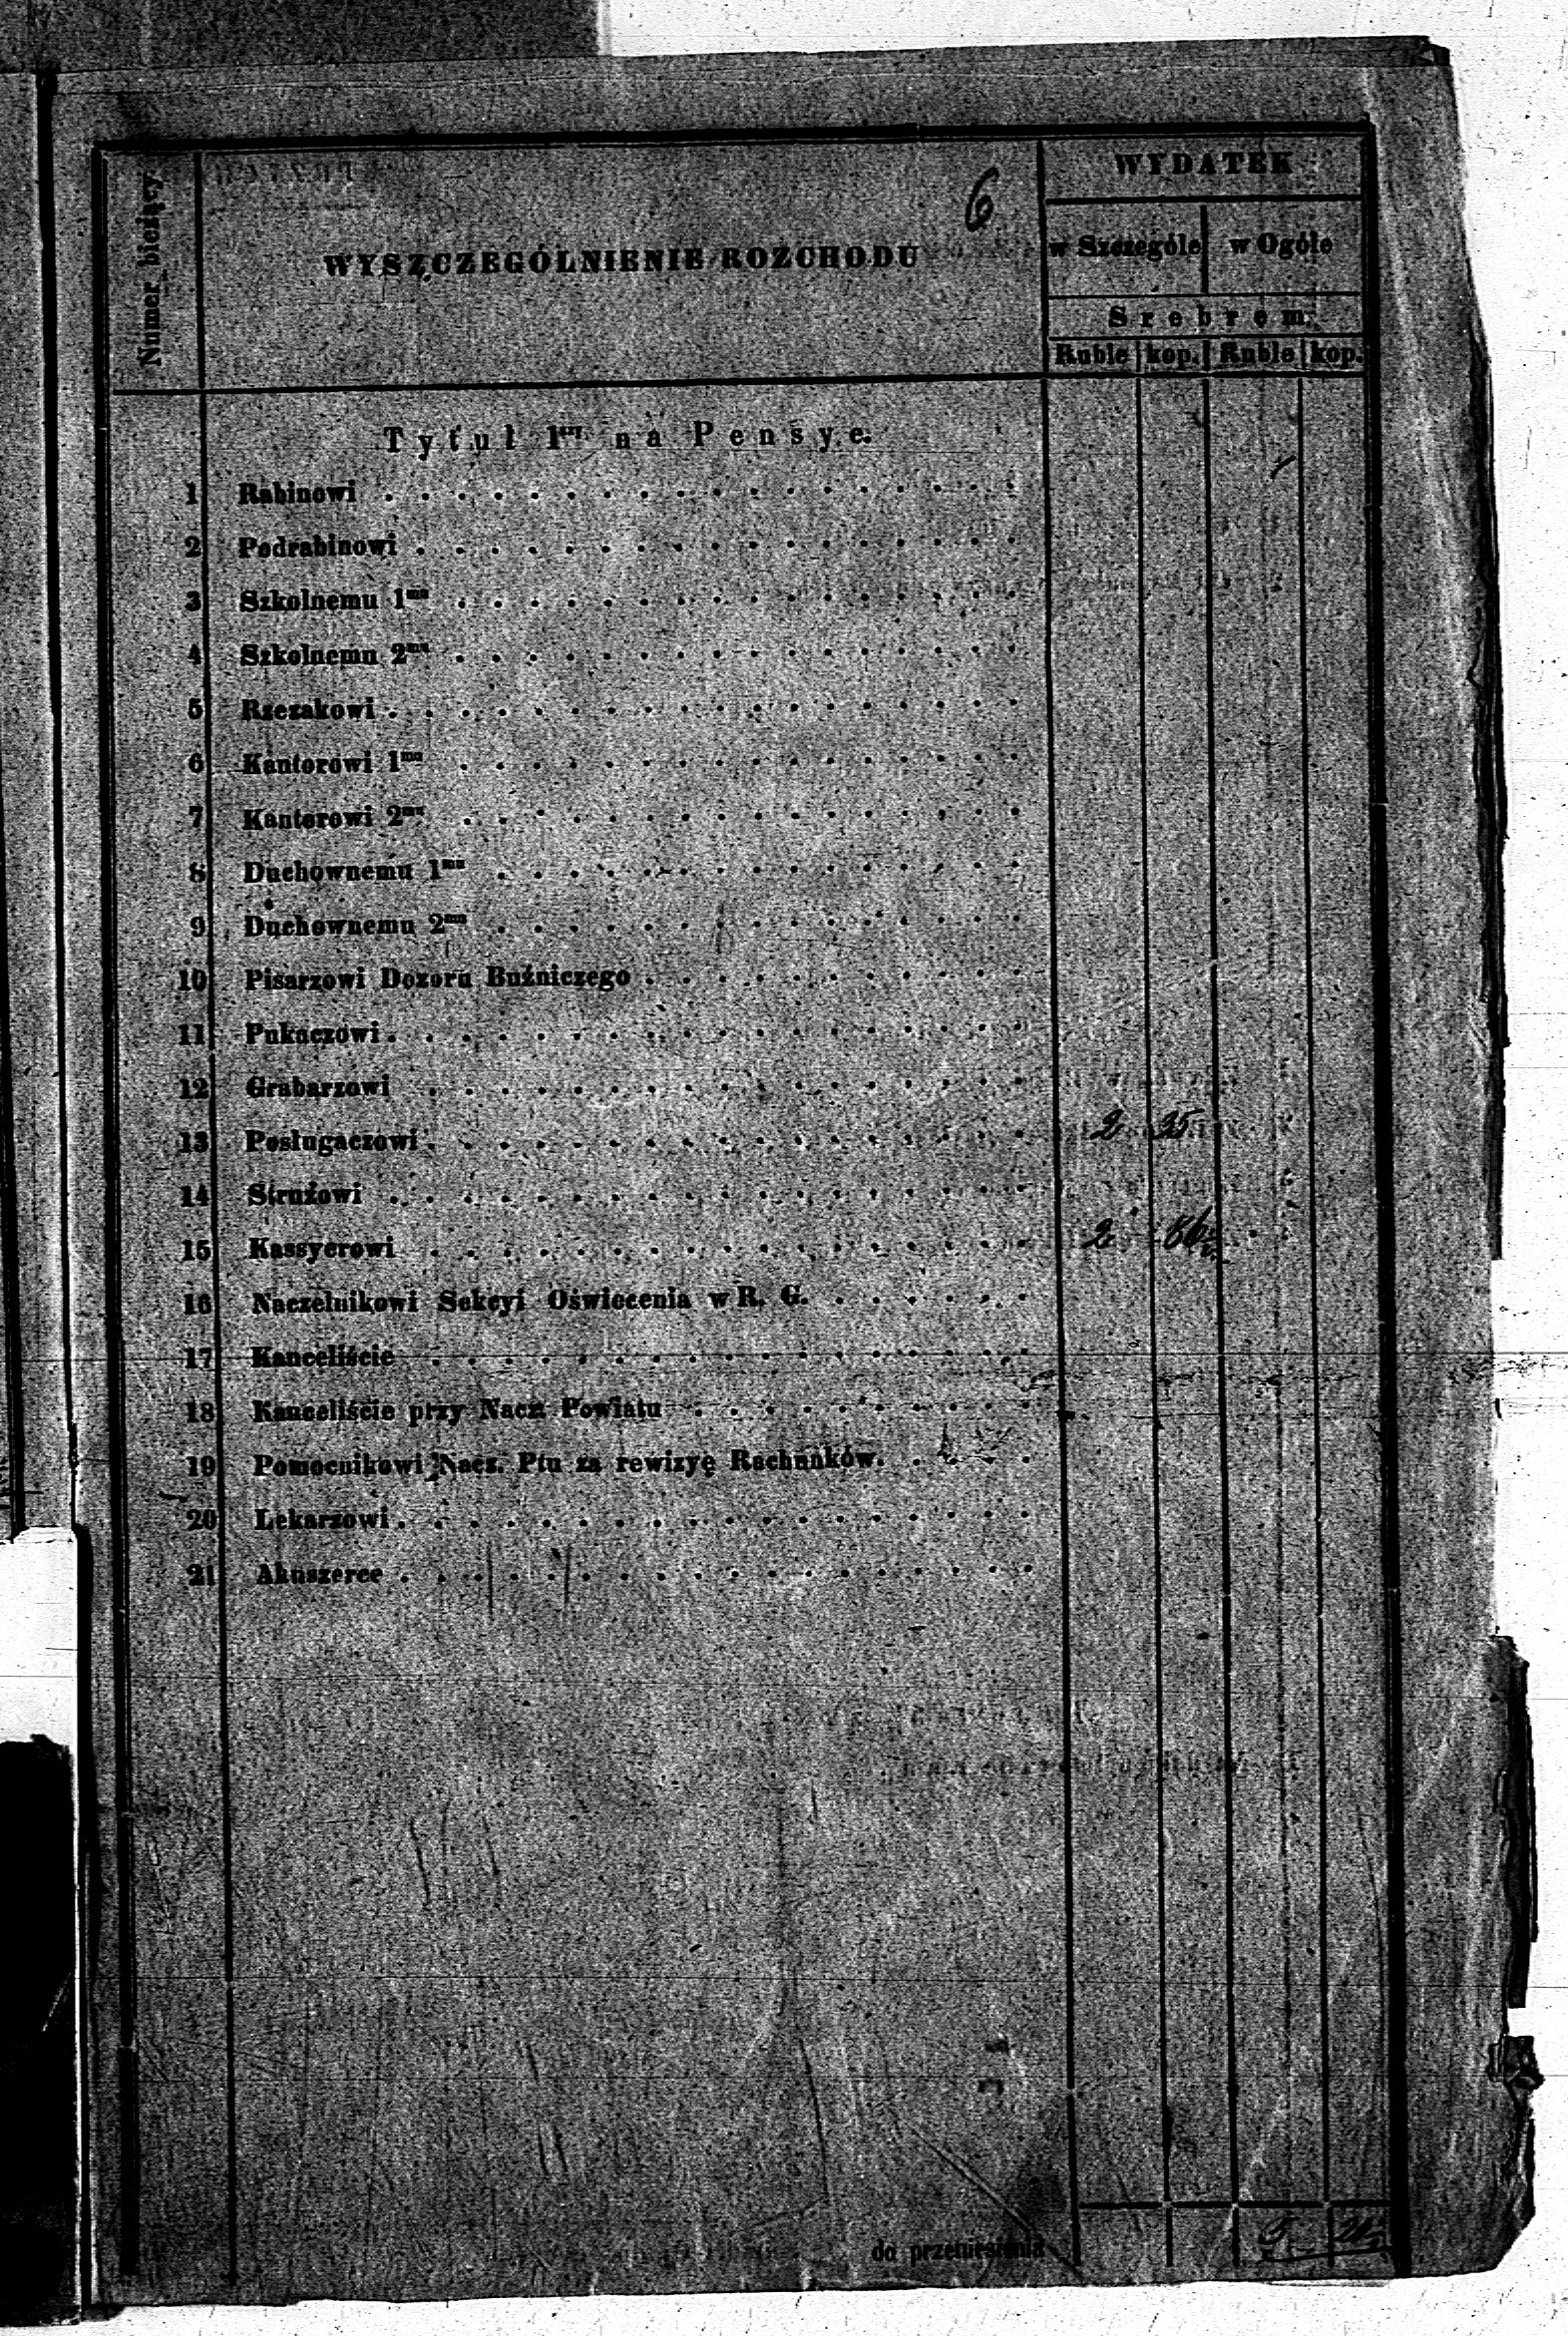 6
Numer bieżący
WYSZCZEGÓLNIENIE ROZCHODU
WYDATEK
w Szczególe w Ogóle
Srebrem
Ruble kop. Ruble kop.
Tytuł 1szy na Pensye.
1 Rabinowi
2 Podrabinowi
3 Szkolnemu 1mu
4 Szkolnemu 2mu
5 Rzezakowi
6 Kantorowi 1mu
7 Kantorowi 2mu
8 Duchownemu 1mu
9 Duchownemu 2mu
10 Pisarzowi Dozoru Bużniczego
11 Pukaczowi
12 Grabarzowi
13 Posługaczowi 2 35
14 Strużowi
15 Kassyerowi 2 86
16 Naczelnikowi Sekcyi Oświecenia w R. G.
17 Kanceliście
18 Kanceliście przy Nacz. Powiatu
19 Pomocnikowi Nacz. Ptu za rewizyę Rachunków.
20 Lekarzowi
21 Akuszerce
do przeniesienia 5